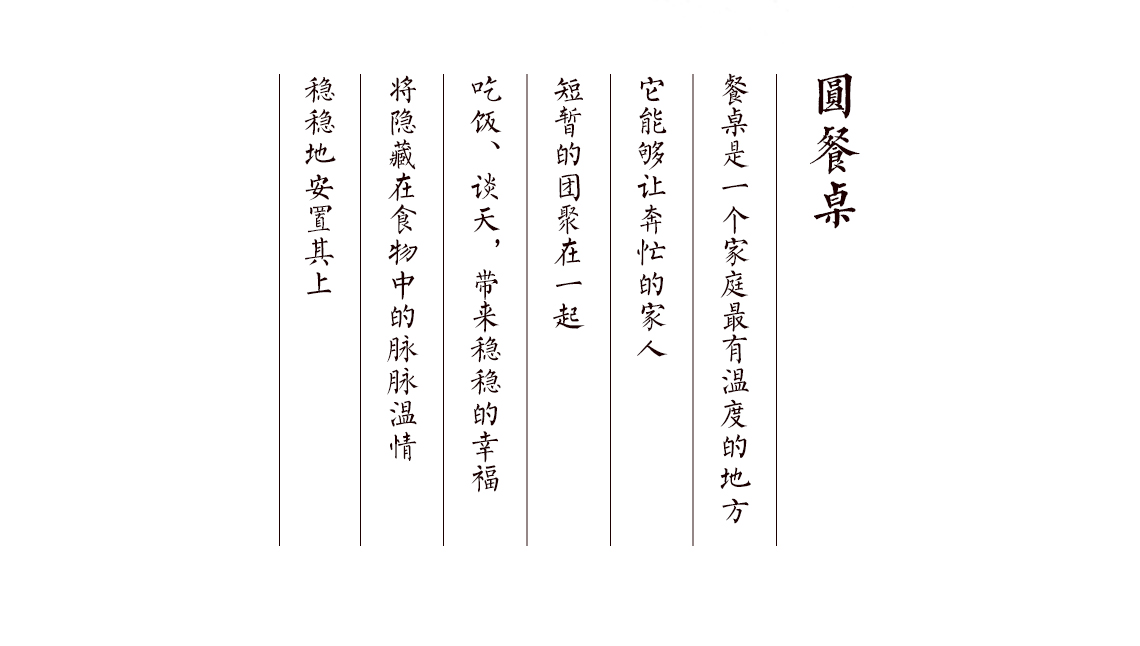 圓餐桌
餐桌是一个家庭最有温度的地方
它能够让奔忙的家人
短暂的团聚在一起
吃饭、谈天，带来稳稳的幸福
将隐藏在食物中的脉脉温情
稳稳地安置其上